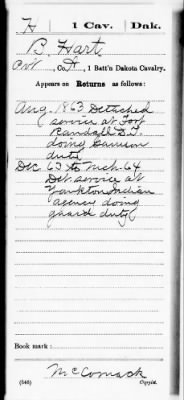 H | 1 Cav. | Dak.
B. Hart
Pvt, Co. A, 1 Batt'n Dakota Cavalry.
Appears on Returns as follows:
Aug. 1863 Detached
service at Fort
Randall D.T.
doing Garrison
duty
Dec 63 to Mch. 64
Det. service at
Yankton Indian
agency doing
guard duty
Book mark:
McComack
(546) Copyist.